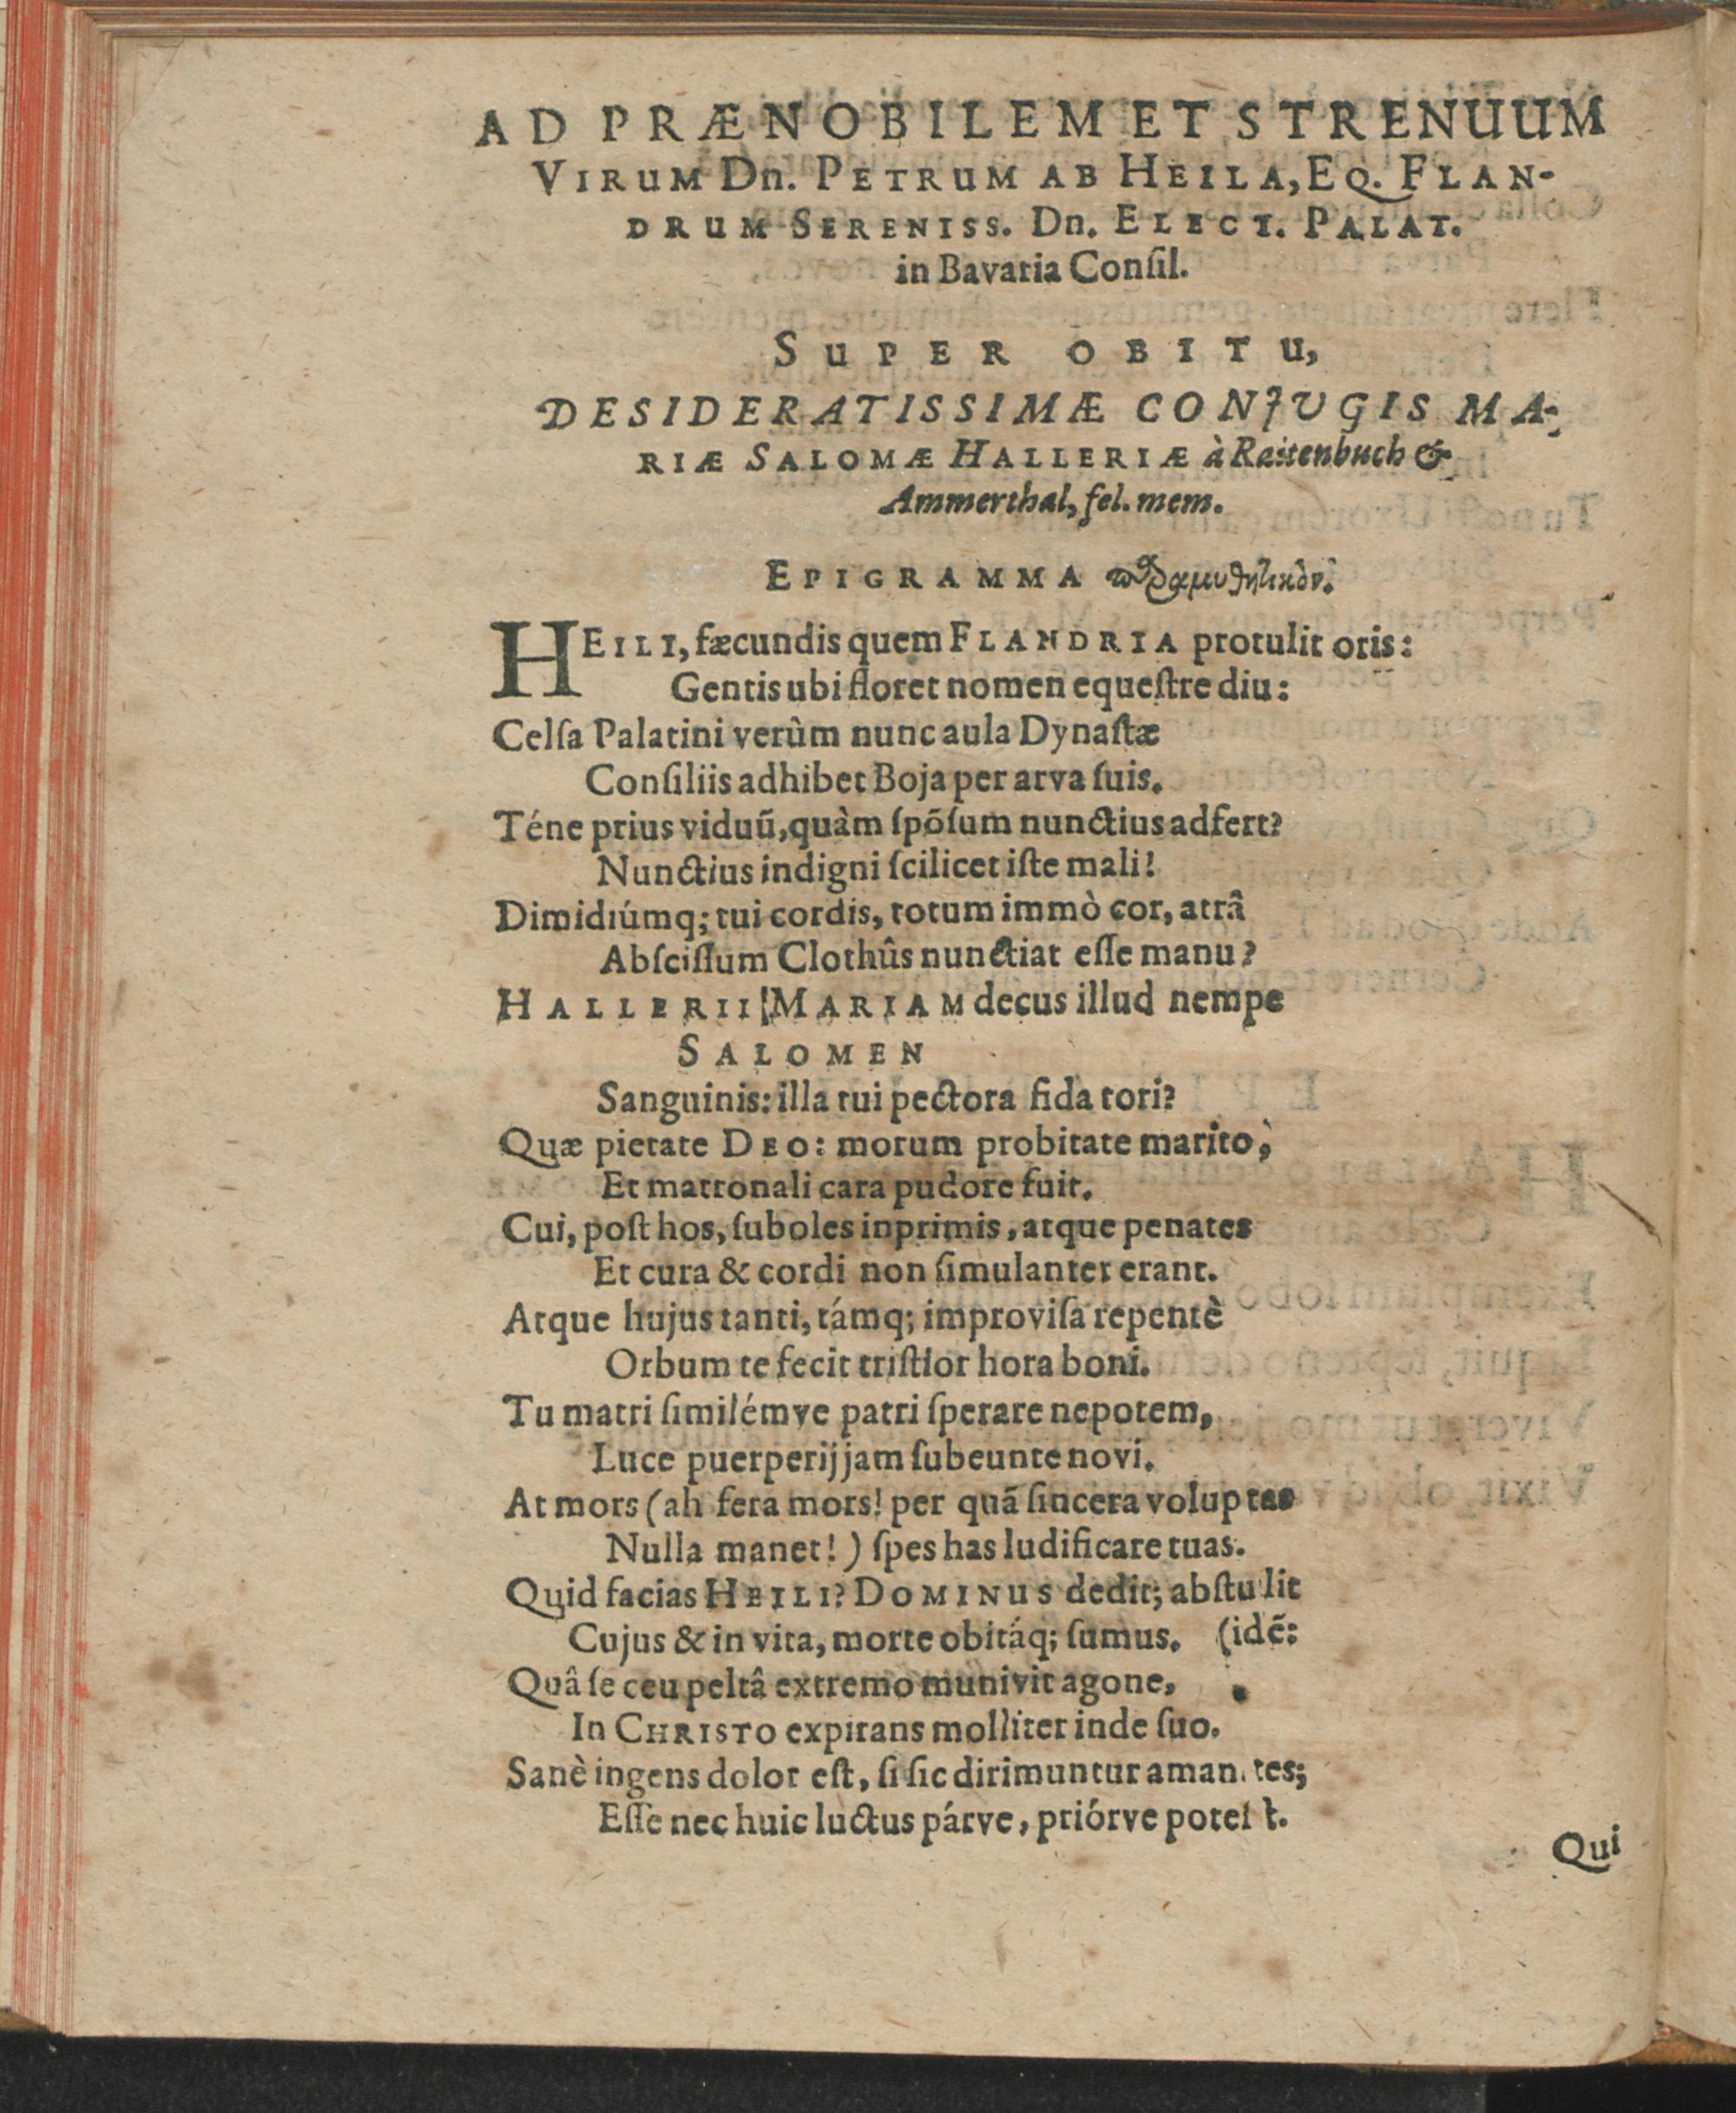 AD PRÆNOBILEM ET STRENUUM
VIRUM Dn. PETRUM AB HEILA, EQ. FLAN-
DRUM SERENISS. Dn. ELECT. PALAT.
in Bavaria Conſil.
SUPER OBITU,
DESIDERATISSIMÆ CONJVGIS MA-
RIÆ SALOMÆ HALLERIÆ à Raitenbuch &
Ammerthal, fel. mem.
EPIGRAMMA παραμυθητικὸν.
HEILI, fæcundis quem FLANDRIA protulit oris:
Gentis ubi floret nomen equeſtre diu:
Celſa Palatini verùm nunc aula Dynaſtæ
Conſiliis adhibet Boja per arva ſuis.
Téne prius viduũ, quàm ſpõſum nunctius adfert?
Nunctius indigni ſcilicet iſte mali!
Dimidiúmq; tui cordis, totum immò cor, atrâ
Abſciſſum Clothûs nunctiat eſſe manu?
HALLERII MARIAM decus illud nempe
SALOMEN
Sanguinis: illa tui pectora fida tori?
Quæ pietate DEO: morum probitate marito,
Et matronali cara pudore fuit.
Cui, poſt hos, ſuboles inprimis, atque penates
Et cura & cordi non ſimulanter erant.
Atque hujus tanti, támq; improviſa repentè
Orbum te fecit triſtior hora boni.
Tu matri ſimilémve patri ſperare nepotem,
Luce puerperij jam ſubeunte novi.
At mors (ah fera mors! per quã ſincera voluptas
Nulla manet!) ſpes has ludificare tuas.
Quid facias HEILI? DOMINUS dedit; abſtulit
Cujus & in vita, morte obitáq; ſumus. (idẽ:
Quâ ſe ceu peltâ extremo munivit agone,
In CHRISTO expirans molliter inde ſuo.
Sanè ingens dolor eſt, ſi ſic dirimuntur amantes;
Eſſe nec huic luctus párve, priórve poteſt.
Qui